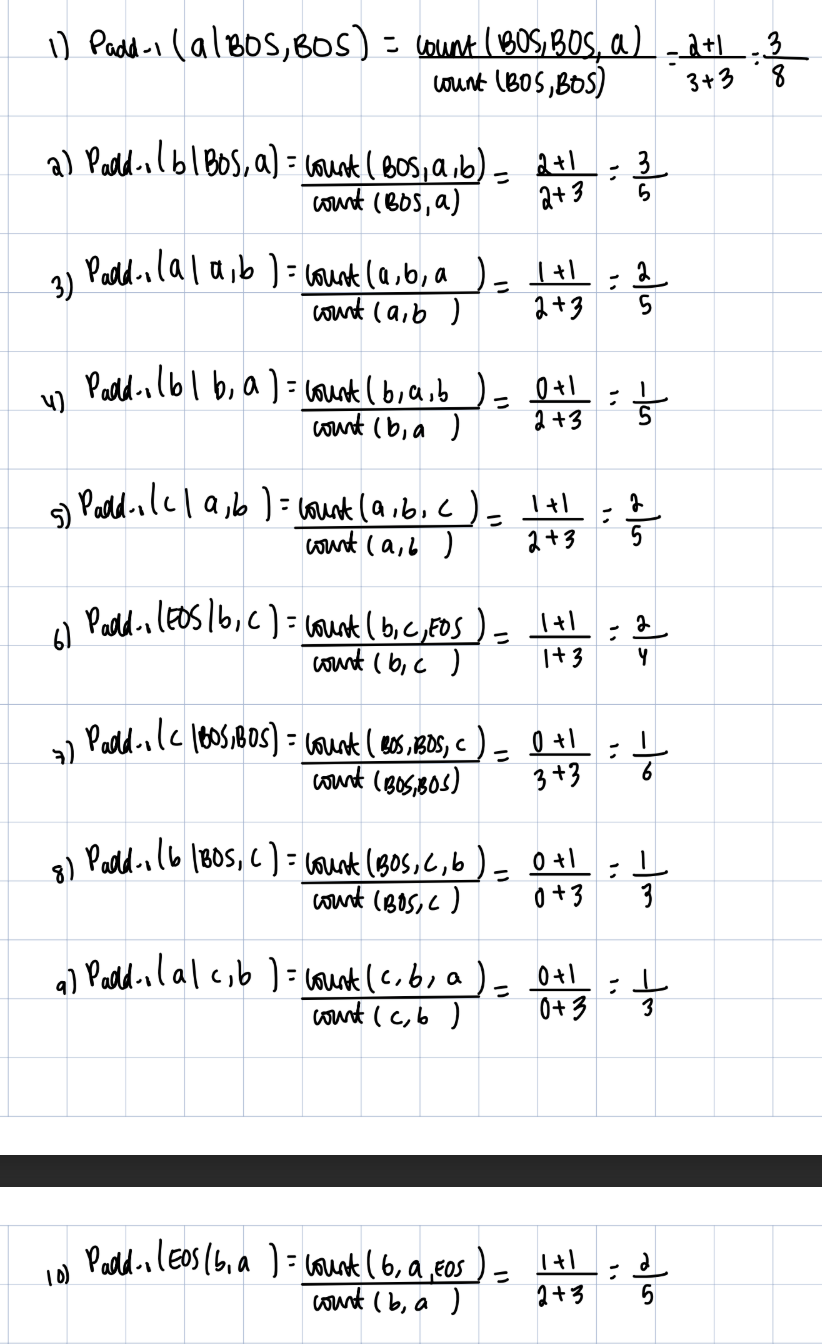 1) Padd-1 (a|BOS,BOS) = count (BOS,BOS, a) / count (BOS,BOS) = 2+1 / 3+3 = 3 / 8
2) Padd-1 (b|BOS, a) = count (BOS, a, b) / count (BOS, a) = 2+1 / 2+3 = 3 / 5
3) Padd-1 (a | a, b) = count (a, b, a) / count (a, b) = 1+1 / 2+3 = 2 / 5
4) Padd-1 (b | b, a) = count (b, a, b) / count (b, a) = 0+1 / 2+3 = 1 / 5
5) Padd-1 (c | a, b) = count (a, b, c) / count (a, b) = 1+1 / 2+3 = 2 / 5
6) Padd-1 (EOS | b, c) = count (b, c, EOS) / count (b, c) = 1+1 / 1+3 = 2 / 4
7) Padd-1 (c |BOS,BOS) = count (BOS,BOS, c) / count (BOS,BOS) = 0+1 / 3+3 = 1 / 6
8) Padd-1 (b |BOS, c) = count (BOS, c, b) / count (BOS, c) = 0+1 / 0+3 = 1 / 3
9) Padd-1 (a | c, b) = count (c, b, a) / count (c, b) = 0+1 / 0+3 = 1 / 3
10) Padd-1 (EOS | b, a) = count (b, a, EOS) / count (b, a) = 1+1 / 2+3 = 2 / 5